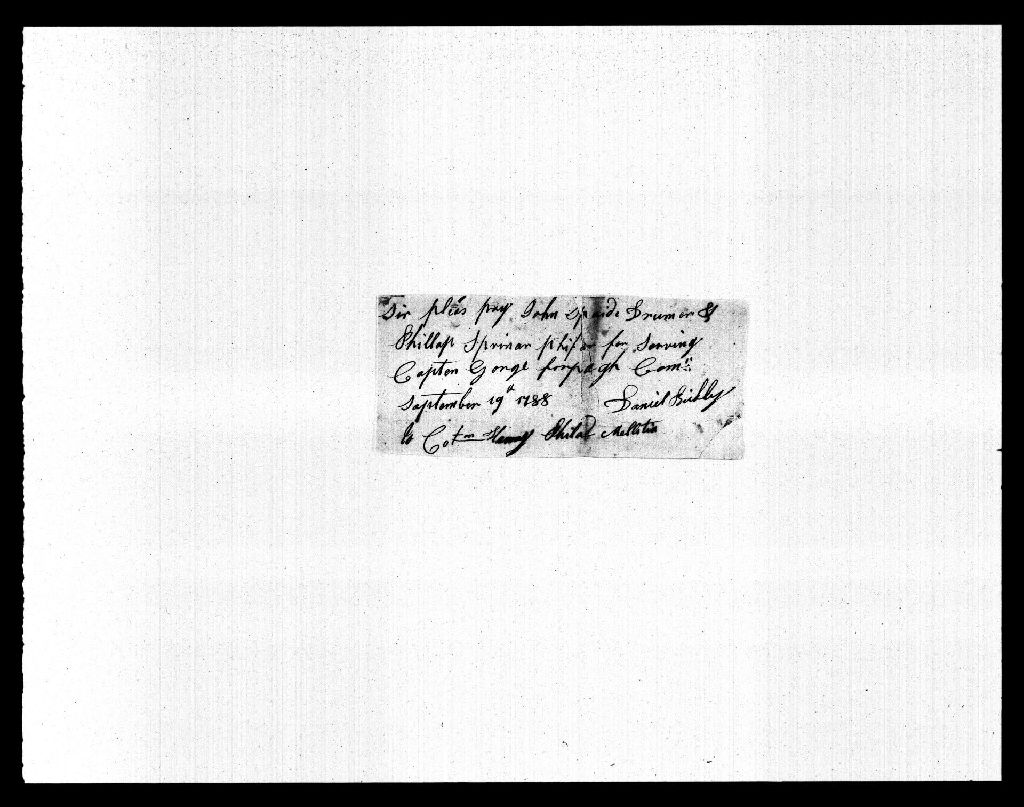 Sir ples pay John Drumer &
Phillap Sprinar phifer for Serving
Capton Gorge forpagh Com
September 19th 1788 Daniel
to Colon Henry Philad Mellitia